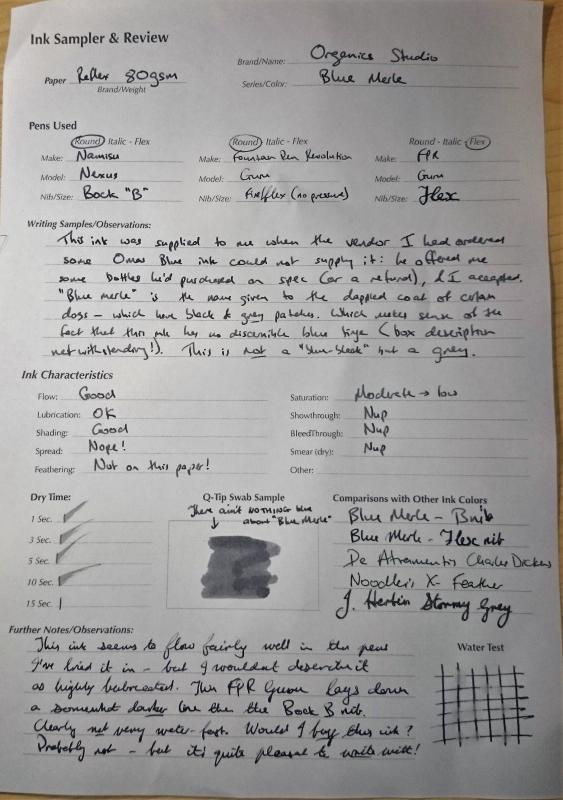 Ink Sampler & Review
Brand/Name: Organics Studio
Paper Reflex 80gsm
Brand/Weight
Series/Color: Blue Merle
Pens Used
Round Italic - Flex
Round Italic - Flex
Round - Italic - Flex
Make: Namisu
Make: Fountain Pen Revolution
Make: FPR
Model: Nexus
Model: Guru
Model: Guru
Nib/Size: Bock "B"
Nib/Size: Flex (no pressure)
Nib/Size: Flex
Writing Samples/Observations:
This ink was supplied to me when the vendor I had ordered
some Omas Blue ink could not supply it: he offered me
some bottles he'd purchased on spec (or a refund), & I accepted.
"Blue merle" is the name given to the dappled coat of certain
dogs - which have black & grey patches. Which makes sense of the
fact that this ink has no discernible blue tinge (box description
notwithstanding!). This is not a "blue-black" but a grey.
Ink Characteristics
Flow: Good
Saturation: Moderate → low
Lubrication: OK
Showthrough: Nup
Shading: Good
BleedThrough: Nup
Spread: Nope!
Smear (dry): Nup
Feathering: Not on this paper!
Other:
Dry Time:
Q-Tip Swab Sample
Comparisons with Other Ink Colors
There ain't NOTHING blue
about "Blue Merle"
1 Sec.
3 Sec.
5 Sec.
10 Sec.
15 Sec.
Blue Merle - B nib
Blue Merle - Flex nib
De Atramentis Charles Dickens
Noodler's X-Feather
J. Herbin Stormy Grey
Further Notes/Observations:
Water Test
This ink seems to flow fairly well in the pens
I've tried it in - but I wouldn't describe it
as highly lubricated. The FPR Guru lays down
a somewhat darker line than the Bock B nib.
Clearly not very water-fast. Would I buy this ink?
Probably not - but it's quite pleasant to write with!